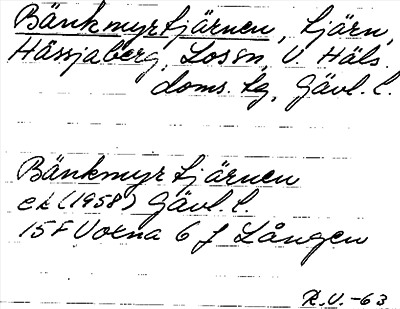 Bänkmyrtjärnen, tjärn,
Hässjaberg, Lossn, V. Häls.
doms. sg, Gävl. l.
Bänkmyrtjärnen
ek (1958) Gävl. l.
15F Voxna 6 f Lången
R.V. -63